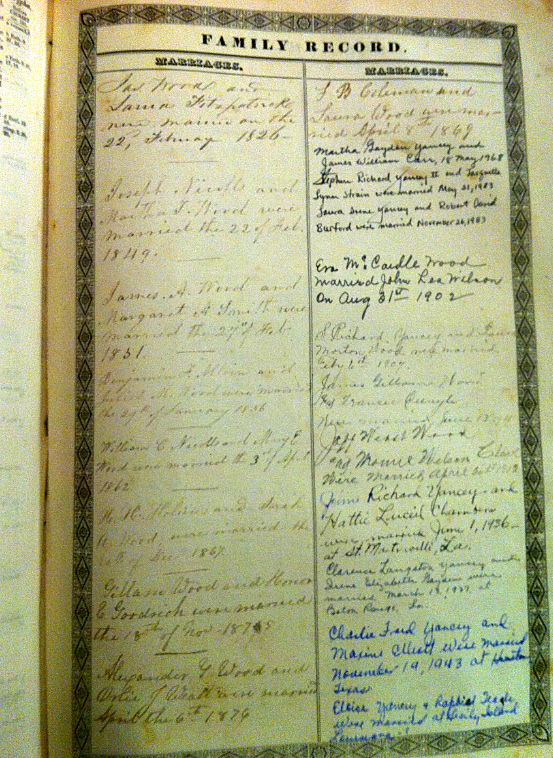 FAMILY RECORD.
MARRIAGES.
Jas Wood and
Laura Fitzpatrick
were married on the
22, February 1826
Joseph Nicolls and
Martha T. Wood were
married the 22 of Feb.
1849.
James A. Wood and
Margaret A Smith were
married the 27 of Feb
1851
Benjamin F.
M. Wood were married
the 29 of January 1856
William C. and Mary E
Wood were married the 3 of April
1862
H. H. Holmes and Sarah
Wood, were married the
of Dec. 1867
Gillam Wood and Honor
E Goodrich were married
the 18th of Nov. 1875
Alexander G. Wood and
J were married
April the 6th 1876
MARRIAGES.
L B Coleman and
Laura Wood were mar-
ried April 8th 1869
Martha Gayden Yancey and
James William Carr, 18 May 1968
Stephen Richard Yancey II and
Lynn Strain were married May 21, 1983
Laura Irene Yancey and Robert David
Burford were married November 26, 1983
Eva McCaulle Wood
married John Lea Wilson
On Aug 31st 1902
S Richard Yancey and
Morton Wood were married
James Gillam Wood
and Francis
Were married June
Jeff West Wood
and Monnie Wilson Clark
Were Married April
Richard Yancey and
Hattie Lucil Chambers
were married June 1, 1936
at St. Martinville, La.
Clarence Langston Yancey and
Irene Elizabeth Gayden were
married, March 19, 1937, at
Baton Rouge, La.
Charlie Fred Yancey and
Maxine Elliott were married
November 19, 1943 at Houston
Texas
Eloise Yancey & Raphiel Teagle
were married at Island
Louisiana